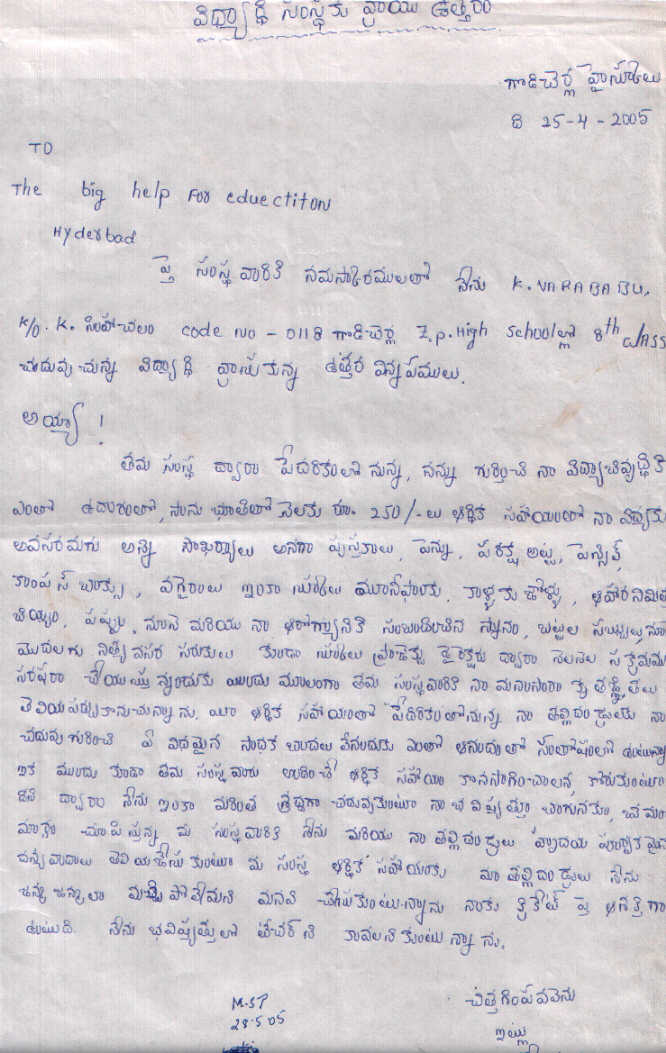 విద్యార్థి సంస్థకు వ్రాయు ఉత్తరం
గాడిచెర్ల హైస్కూలు
ది 25-4-2005
TO
The big help For eduectiton
Hyderbad
పై సంస్థ వారికి నమస్కారములతో నేను K. NARABABU,
K/o. K. సింహాచలం code no - 0118 గాడిచెర్ల Z.p. High Schoolలో 8th class
చదువుచున్న విద్యార్థి వ్రాయుకున్న ఉత్తర విన్నపములు.
అయ్యా !
తమ సంస్థ ద్వారా పేదరికంలో నున్న, నన్ను గుర్తించి నా విద్యాభివృద్ధికి
ఎంతో ఉదారంతో, నెలకు రూ. 250/-లు ఆర్థిక సహాయంతో నా విద్యకు
అవసరమగు అన్ని సౌఖర్యాలు అనగా పుస్తకాలు, పెన్ను, పరీక్ష అట్ట, పెన్సిల్,
కాంపస్ బాక్సు, వగైరాలు ఇంకా స్కూలు యూనీఫాంకు, కాళ్ళకు జోళ్ళు, ఆహార నిమిత్త
బియ్యం, పప్పు, నూనె మరియు నా ఆరోగ్యానికి సంబంధించిన స్నానం, బట్టల సబ్బులు నూ
మొదలగు నిత్యవసర సరుకులు కుండా స్కూలు ప్రాజెక్టు డైరెక్టరు ద్వారా నెలనెల సక్రమము
సరఫరా చేయుచున్నందుకు యిందు మూలంగా తమ సంస్థవారికి నా మనసారా కృతజ్ఞతలు
తెలియపర్చుకొనుచున్నాను. యీ ఆర్థిక సహాయంతో పేదరికంలోనున్న నా తల్లిదండ్రులకు నా
చదువు గురించి ఏ విధమైన సాధక బాధలు లేనందుకు ఎంతో ఆనందంతో సంతోషంలో ఉంటున్నా
ఇక ముందు కుండా తమ సంస్థవారు ఆర్థిక సహాయం కొనసాగించాలన్న కోరుకుంటూ
దీని ద్వారా నేను ఇంకా మరింత శ్రద్ధగా చదువుకుంటూ నా భవిష్యత్తు బాగునకు,
మార్గం చూపిస్తున్న మీ సంస్థ వారికి నేను మరియు నా తల్లిదండ్రులు హృదయ పూర్వకమైన
ధన్యవాదాలు తెలియజేసుకుంటూ మీ సంస్థ ఆర్థిక సహాయంకు మా తల్లిదండ్రులు నేను
జన్మ జన్మలా మర్చిపోలేమని మనవి చేసుకుంటున్నాను నాకు క్రికేట్ పై ఆసక్తిగా
ఉంటుంది. నేను భవిష్యత్తులో టీచర్ ని కావలనికుంటున్నాను.
M.SP
28-5-05
చిత్తగింపవలెను
ఇట్లు